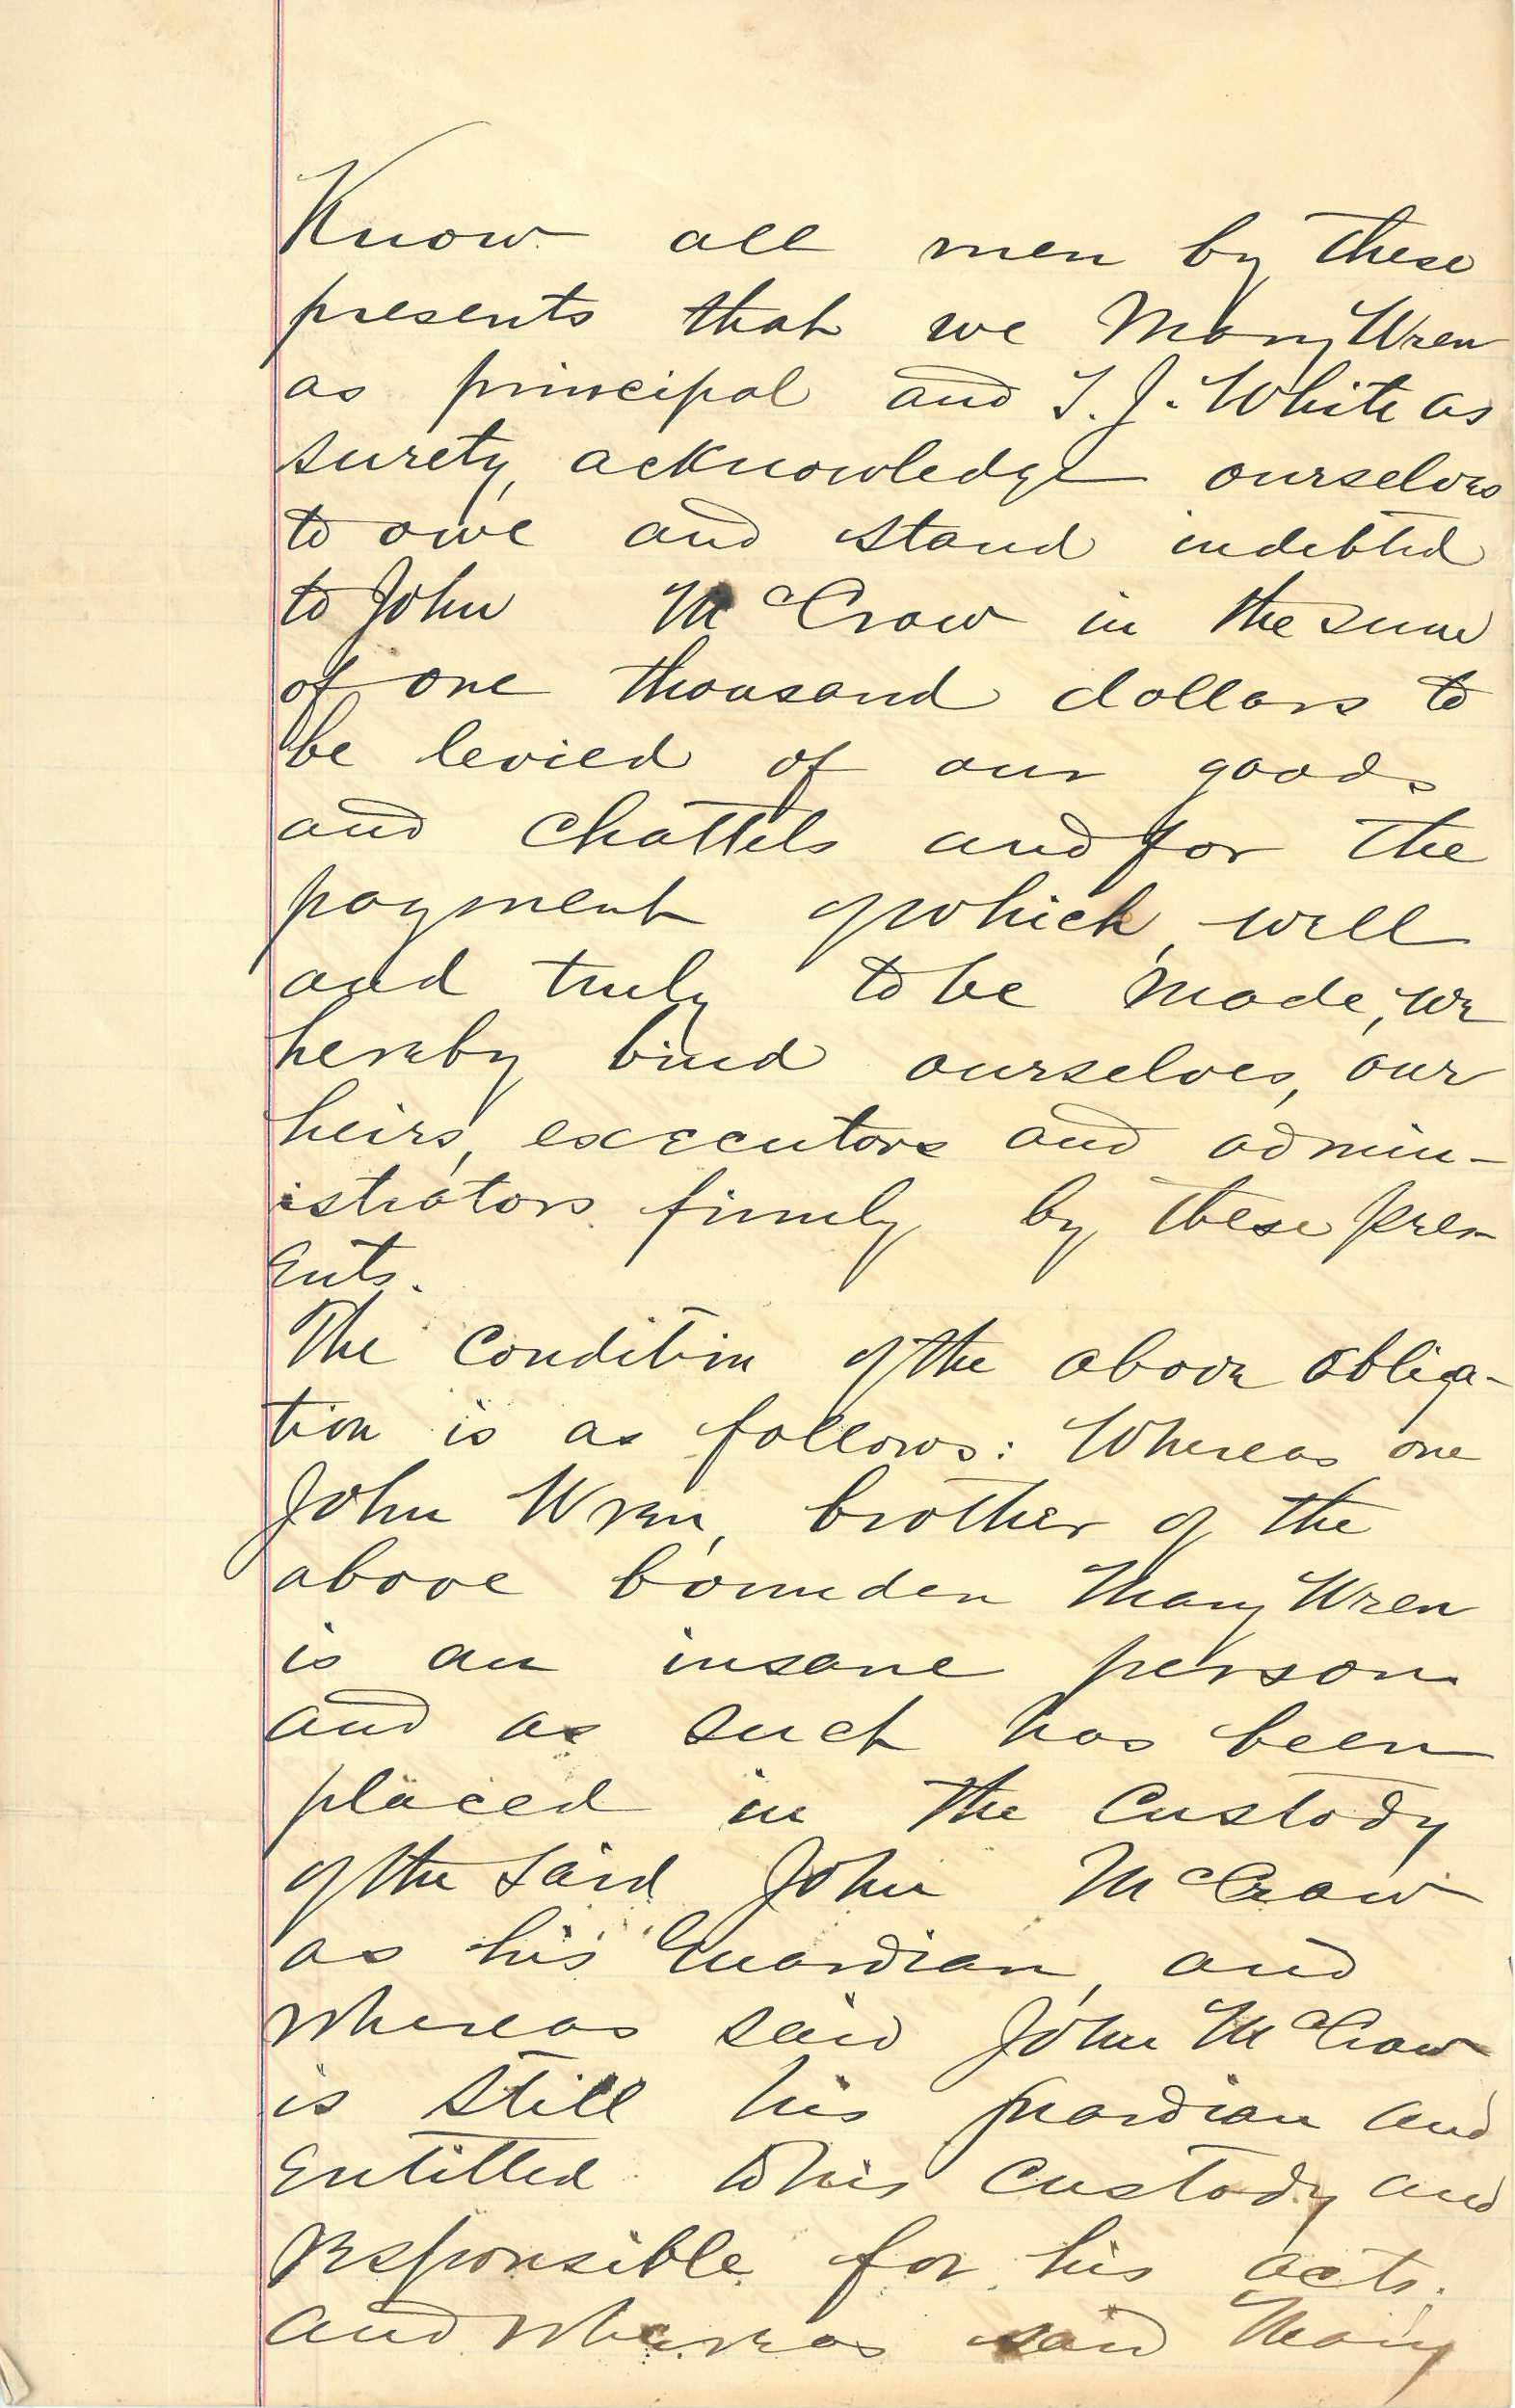 Know all men by these
presents that we Mary Wren
as principal and T. J. White as
surety, acknowledge ourselves
to owe and stand indebted
to John McCraw in the sum
of one thousand dollars to
be levied of our goods
and chattels and for the
payment of which, well
and truly to be made, we
hereby bind ourselves, our
heirs, executors and admin-
istrators firmly by these pres-
ents.
The condition of the above obliga-
tion is as follows: Whereas one
John Wren, brother of the
above bounden Mary Wren
is an insane person
and as such has been
placed in the custody
of the said John McCraw
as his Guardian, and
whereas said John McCraw
is still his guardian and
entitled to his custody and
responsible for his acts.
and whereas said Mary